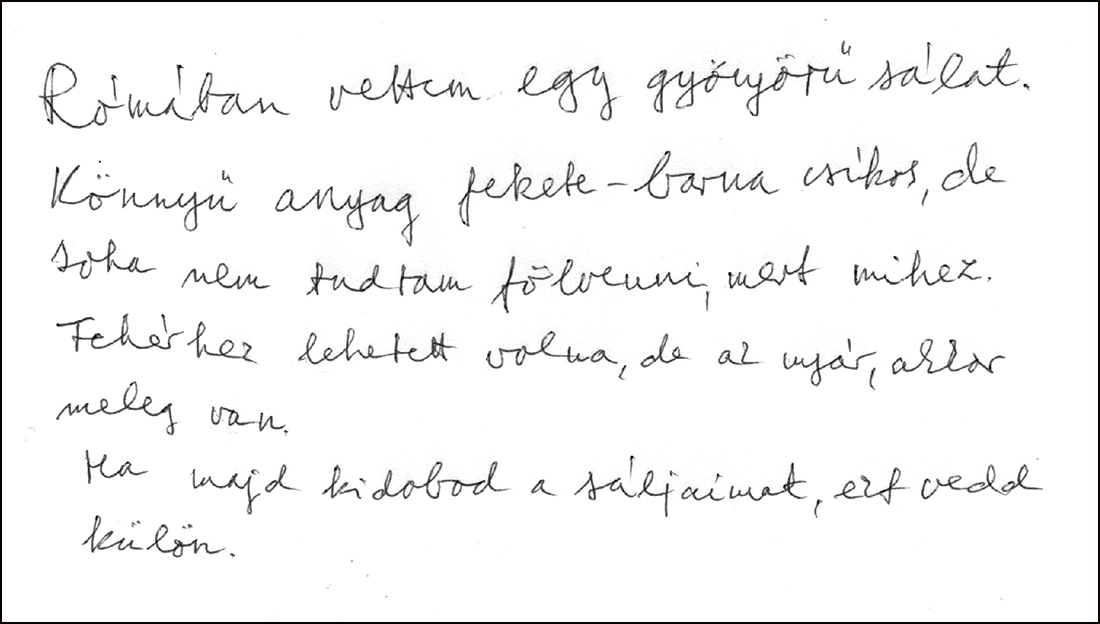 Rómában vettem egy gyönyörű sálat.
Könnyű anyag fekete-barna csíkos, de
soha nem tudtam fölvenni, mert mihez.
Fehérhez lehetett volna, de az nyár, akkor
meleg van.
Ha majd kidobod a sáljaimat, ezt vedd
külön.